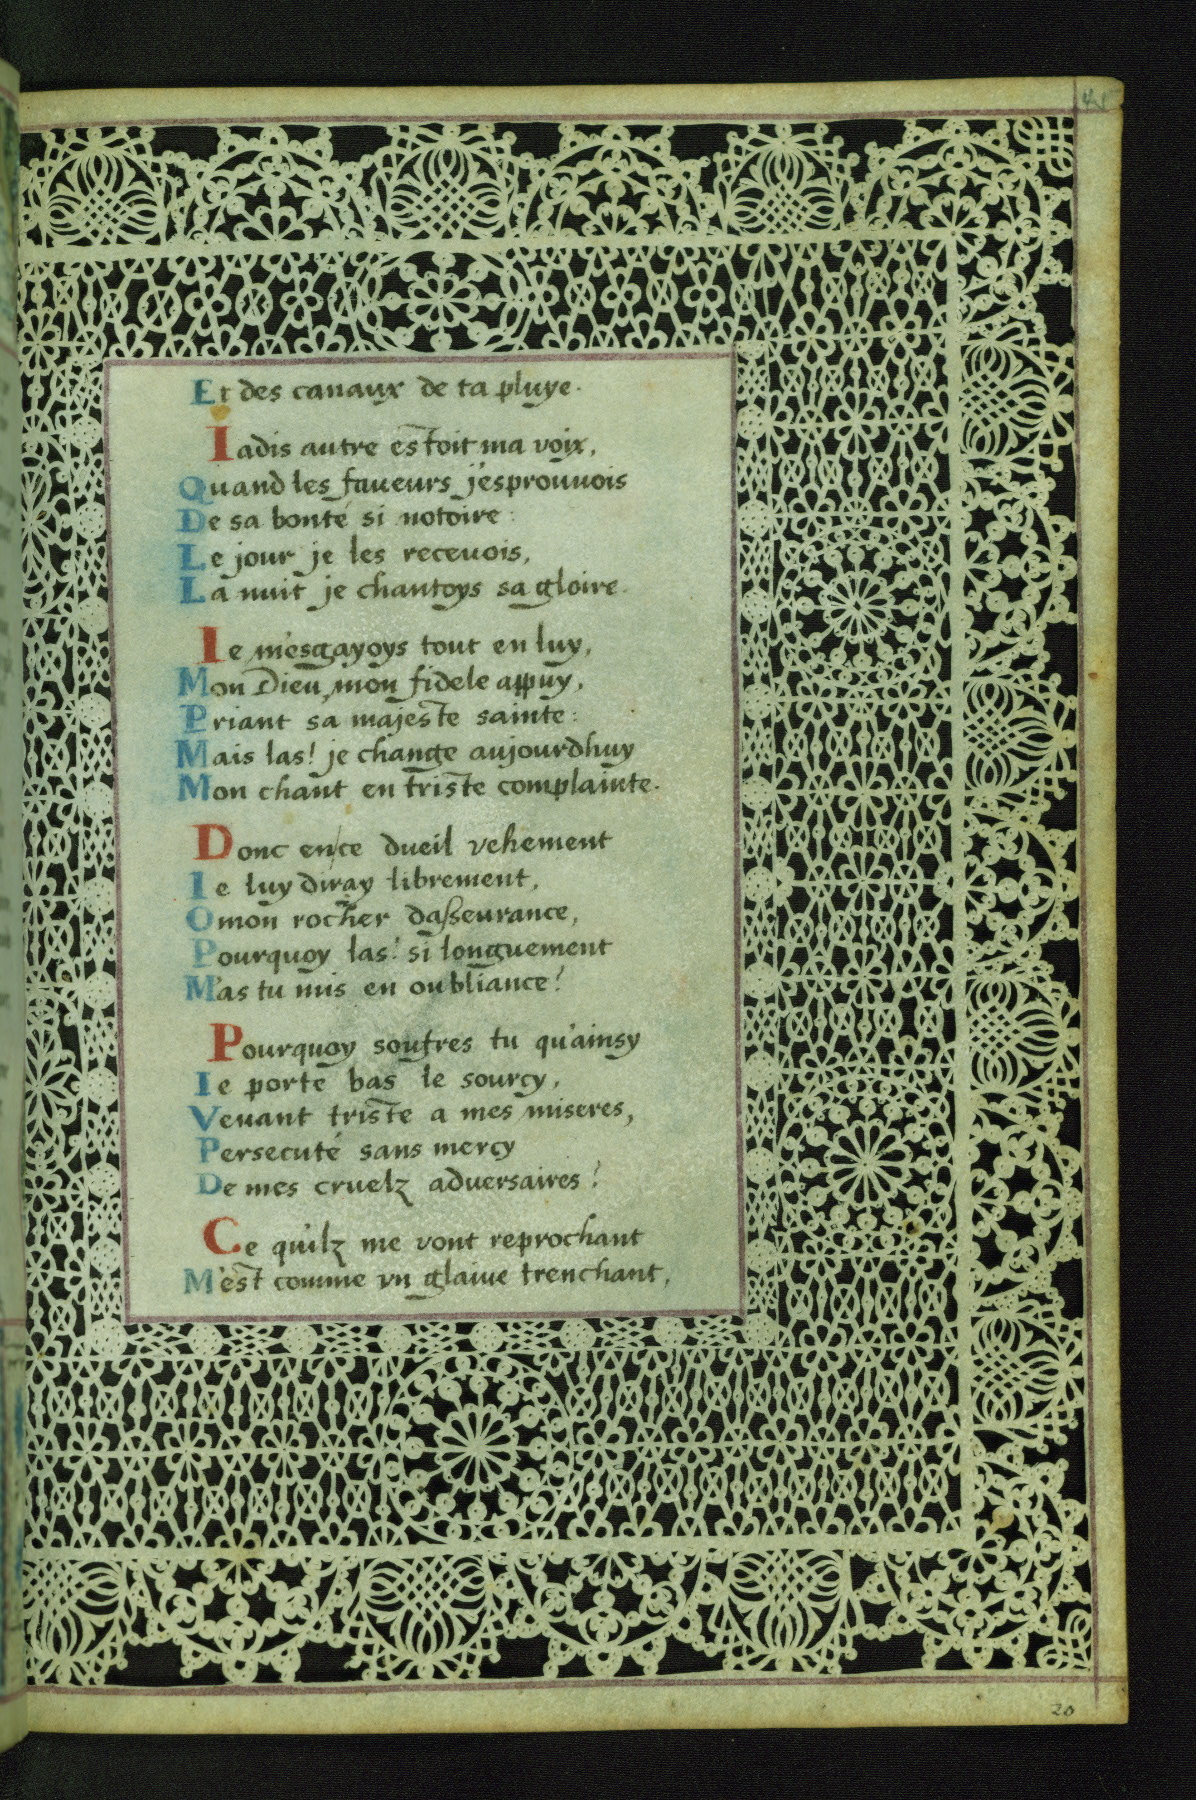 Et des canaux de ta pluye.
Iadis autre estoit ma voix,
Quand les faueurs j'esprouuois
De sa bonté si notoire:
Le jour je les receuois,
La nuit je chantoys sa gloire.
Ie m'esgayoys tout en luy,
Mon Dieu, mon fidele appuy,
Priant sa majeste sainte:
Mais las! je change aujourdhuy
Mon chant en triste complainte.
Donc en ce dueil vehement
Ie luy diray librement,
O mon rocher dasseurance,
Pourquoy las! si longuement
M'as tu mis en oubliance?
Pourquoy soufres tu qu'ainsy
Ie porte bas le sourcy,
Venant triste a mes miseres,
Persecuté sans mercy
De mes cruelz aduersaires?
Ce qu'ilz me vont reprochant
M'est comme vn glaiue trenchant,
20